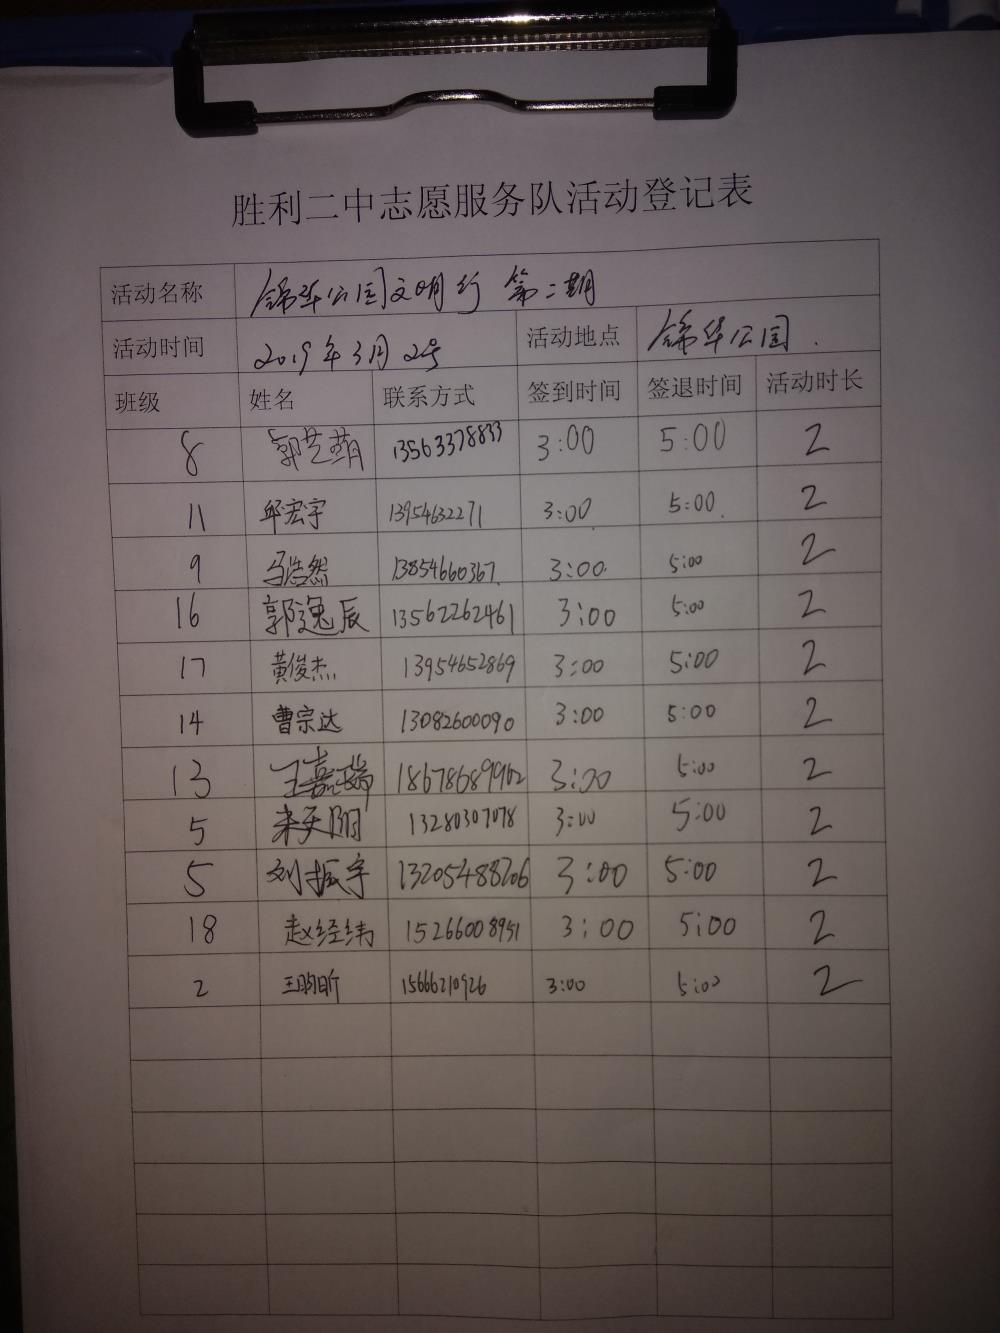 胜利二中志愿服务队活动登记表
活动名称 锦华公园文明行 第二期
活动时间 2019年3月2号 活动地点 锦华公园.
班级 姓名 联系方式 签到时间 签退时间 活动时长
8 郭艺萌 13563378833 3:00 5:00 2
11 邱宏宇 13954632271 3:00 5:00 2
9 马浩然 13854660367 3:00 5:00 2
16 郭逸辰 13562262461 3:00 5:00 2
17 黄俊杰 13954652869 3:00 5:00 2
14 曹宗达 13082600090 3:00 5:00 2
13 王嘉瑞 18678689962 3:00 5:00 2
5 天阳 13280307078 3:00 5:00 2
5 刘振宇 13205488206 3:00 5:00 2
18 赵经纬 15266008951 3:00 5:00 2
2 王昀昕 15666210926 3:00 5:00 2